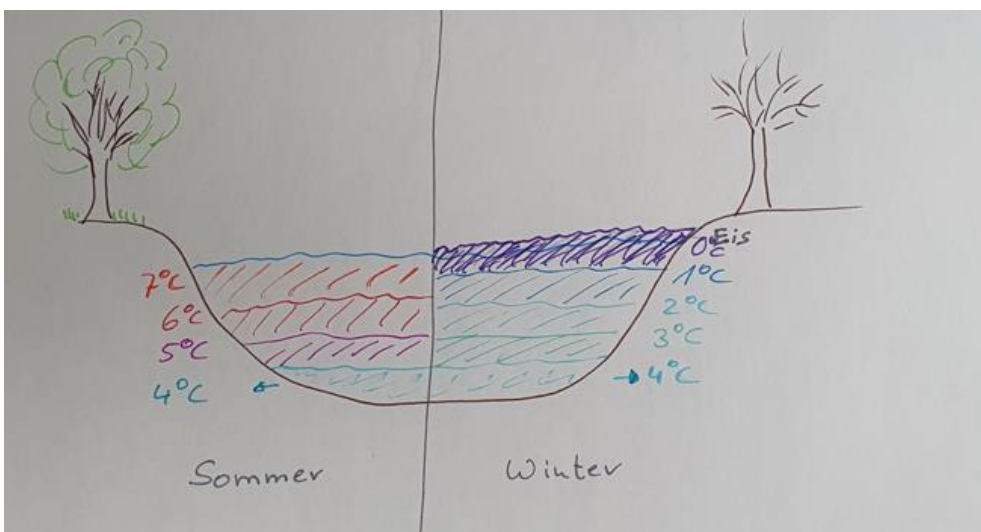 7°C
6°C
5°C
4°C
Eis
0°C
1°C
2°C
3°C
4°C
Sommer
Winter